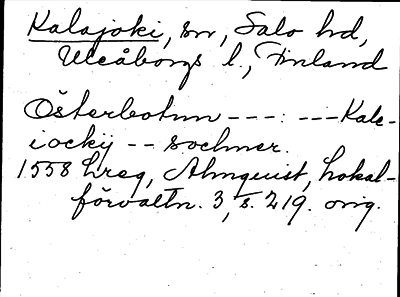 Kalajoki, sn, Salo hd,
Uleåborgs l, Finland
Österbotnn ---: --- Kale-
iockij -- sochner.
1558 Lreg, Almquist, Lokal-
förvaltn. 3, s. 219. orig.